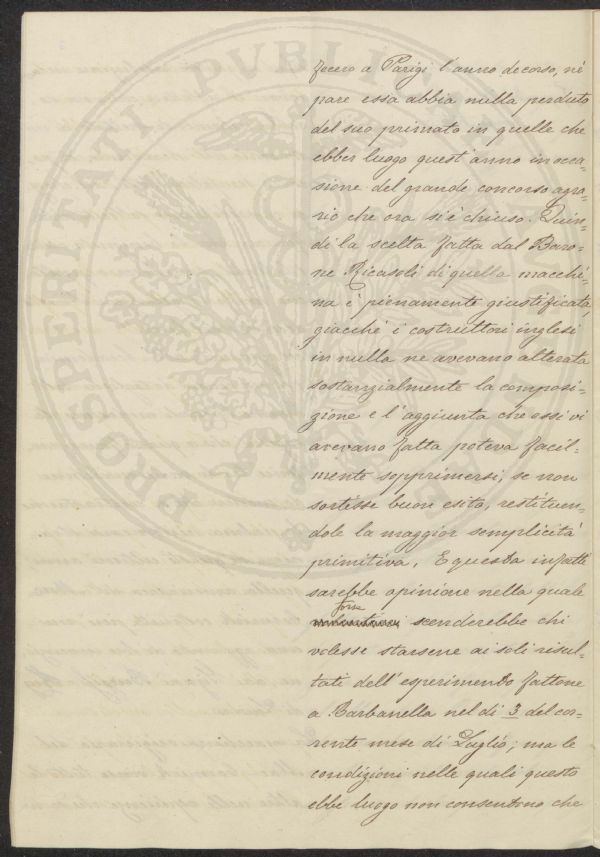 fecero a Parigi l'anno decorso, nè
pare essa abbia nulla perduto
del suo primato in quelle che
ebber luogo quest'anno in occa-
sione del grande concorso agra-
rio che ora si è chiuso. Quin-
di la scelta fatta dal Baro-
ne Ricasoli di quella macchi-
na è pienamente giustificata,
giacchè i costruttori inglesi
in nulla ne avevano alterata
sostanzialmente la composi-
zione e l'aggiunta che essi vi
avevano fatta poteva facil-
mente sopprimersi, se non
sortisse buon esito, restituen-
dole la maggior semplicità
primitiva. E questa infatti
sarebbe opinione nella quale
forse scenderebbe chi
volesse starsene ai soli risul-
tati dell'esperimento fattone
a Barbanella nel dì 3 del cor-
rente mese di Luglio; ma le
condizioni nelle quali questo
ebbe luogo non consentono che
PROSPERITATI PVBLIC